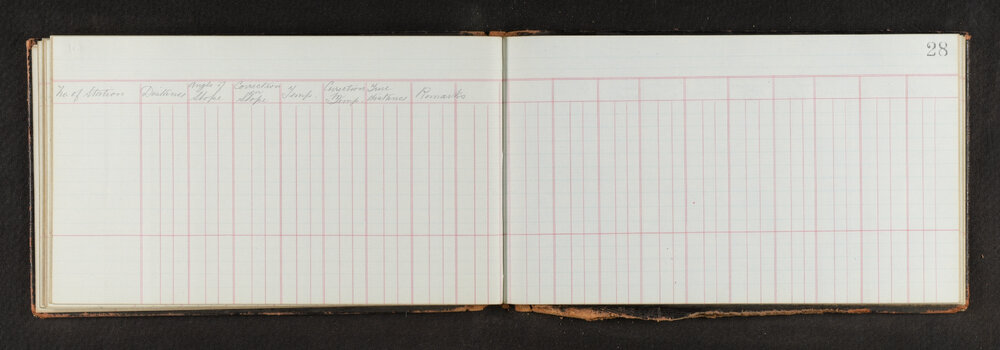 28
No of Station
Distance
Angle of
Slope
Correction
for
Slope
Temp.
Correction
Temp.
True
distance
Remarks